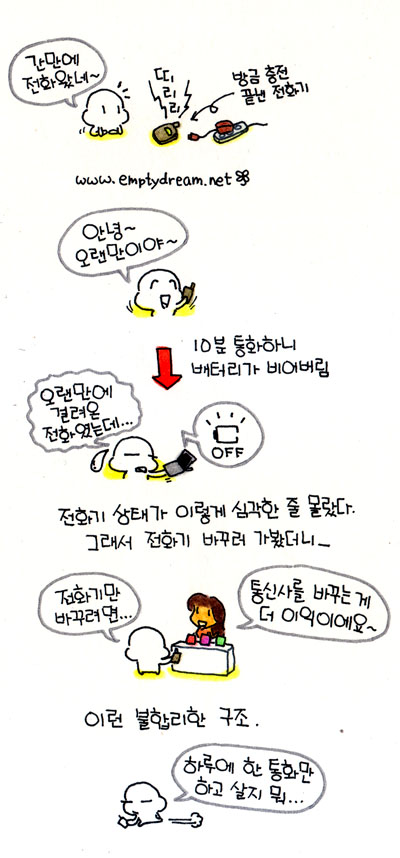 간만에
전화왔네~
띠
리
리
방금 충전
끝낸 전화기
www.emptydream.net
안녕~
오랜만이야~
10분 통화하니
배터리가 비어버림
오랜만에
걸려온
전화였는데...
OFF
전화기 상태가 이렇게 심각한 줄 몰랐다.
그래서 전화기 바꾸러 가봤더니_
전화기만
바꾸려면...
통신사를 바꾸는게
더 이익이에요~
이런 불합리한 구조.
하루에 한 통화만
하고 살지 뭐...